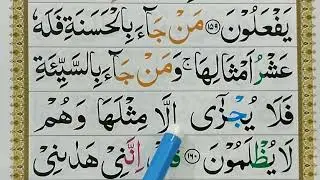 يَفْعَلُوْنَ ﴿١٥٩﴾ مَنْ جَآءَ بِالْحَسَنَةِ فَلَهٗ
عَشْرُ اَمْثَالِهَا ۚ وَمَنْ جَآءَ بِالسَّيِّئَةِ
فَلَا يُجْزٰٓى اِلَّا مِثْلَهَا وَهُمْ
لَا يُظْلَمُوْنَ ﴿١٦٠﴾ قُلْ اِنَّنِيْ هَدٰىنِيْ